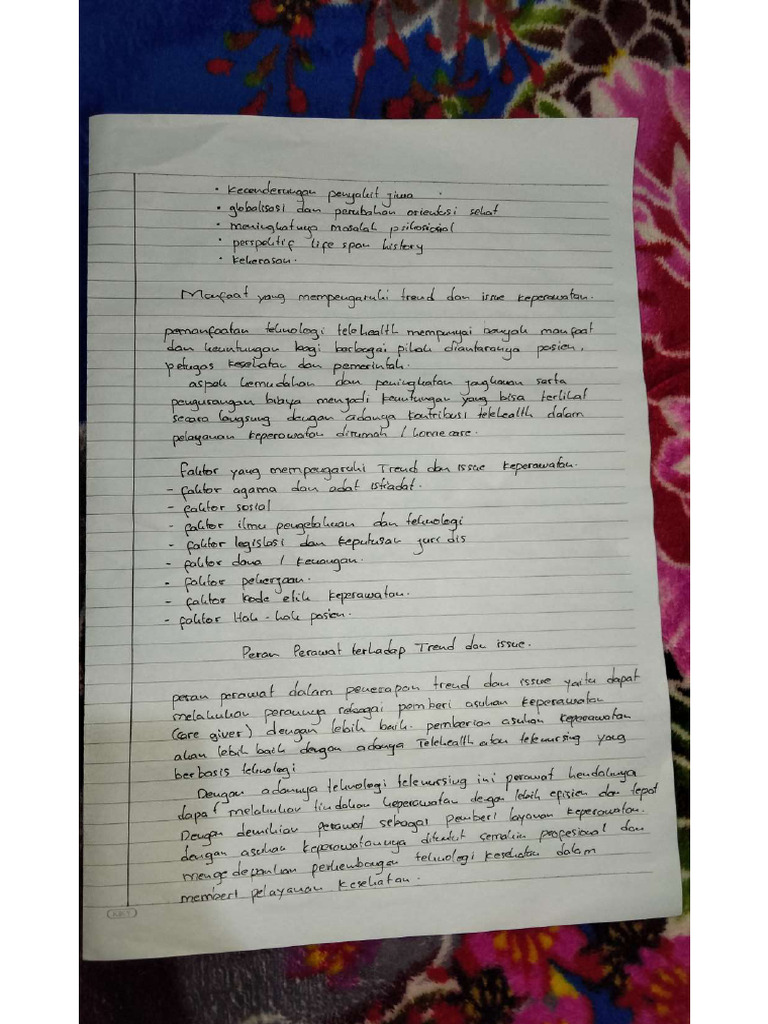 • Kecenderungan penyakit jiwa
• globalisasi dan perubahan orientasi sehat
• meningkatnya masalah psikososial
• perspektif life span history
• kekerasan.
Manfaat yang mempengaruhi trend dan issue keperawatan.
pemanfaatan teknologi telehealth mempunyai banyak manfaat
dan keuntungan bagi berbagai pihak diantaranya pasien,
petugas kesehatan dan pemerintah.
aspek kemudahan dan peningkatan jangkauan serta
pengurangan biaya menjadi keuntungan yang bisa terlihat
secara langsung dengan adanya kontribusi telehealth dalam
pelayanan keperawatan dirumah / homecare.
Faktor yang mempengaruhi Trend dan issue keperawatan.
- faktor agama dan adat istiadat.
- faktor sosial
- faktor ilmu pengetahuan dan teknologi
- faktor legislasi dan keputusan juridis
- faktor dana / keuangan.
- faktor pekerjaan.
- faktor kode etik keperawatan.
- faktor Hak-hak pasien.
Peran Perawat terhadap Trend dan issue.
peran perawat dalam penerapan trend dan issue yaitu dapat
melakukan perannya sebagai pemberi asuhan keperawatan
(care giver) dengan lebih baik. pemberian asuhan keperawatan
akan lebih baik dengan adanya Telehealth atau telenursing yang
berbasis teknologi
Dengan adannya teknologi telenursing ini perawat hendaknya
dapat melakukan tindakan keperawatan dengan lebih efisien dan tepat
Dengan demikian perawat sebagai pemberi layanan keperawatan.
dengan asuhan keperawatannya dituntut semakin profesional dan
mengedepankan perkembangan teknologi kesehatan dalam
memberi pelayanan kesehatan.